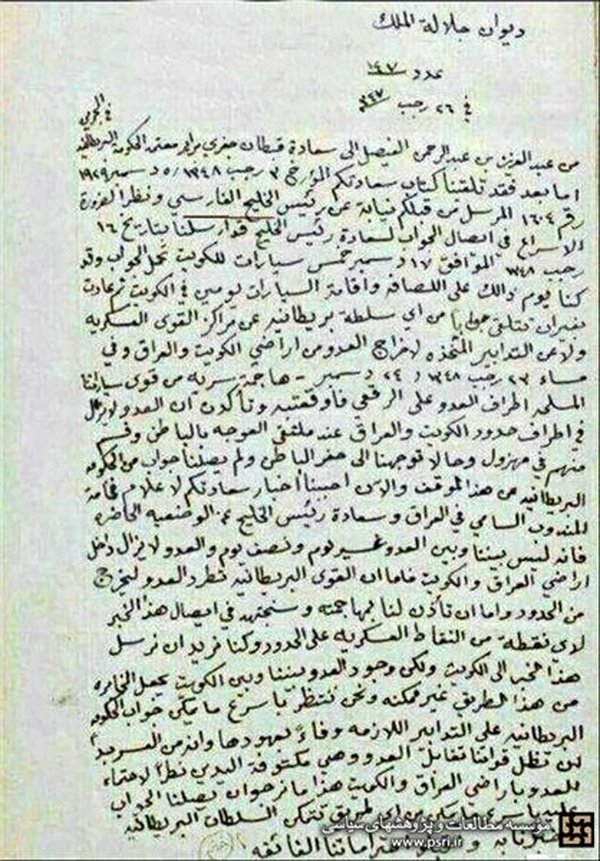 ديوان جلالة الملك
عدد ١٤٧
في ٢٦ رجب ٣٤٧
من عبد العزيز بن عبد الرحمن الفيصل الى سعادة قبطان
اما بعد فقد تلقينا كتاب سعادتكم المؤرخ ٣ رجب ١٣٤٨ / ٥ دسمبر ١٩٢٩
رقم ١٦٠٤ المرسل من قبلكم نيابة عن رئيس الخليج الفارسي ونظرا لضرورة
الاسراع في ايصال الجواب لسعادة رئيس الخليج فقد ارسلنا بتاريخ ١٦
رجب ١٣٤٨ الموافق ١٧ دسمبر خمس سيارات للكويت تحمل الجواب وقد
كنا يوم ذاك على اللصافه واقامة السيارات يومين في الكويت ثم عادت
بغيران تتلقى جوابا من اي سلطة بريطانيه عن مراكز القوى العسكريه
ولا عن التدابير المتخذه لاخراج العدو من اراضي الكويت والعراق وفي
مساء ٢٣ رجب ١٣٤٨ / ٢٤ دسمبر - هاجمة سريه من قوى سياراتنا
المسلحه اطراف العدو على الرقعي فاوقعتبه وتأكدن ان العدو لايزال
في اطراف حدود الكويت والعراق عند ملتقى العوجه بالباطن وقسم
منهم في مهزول وحالا توجهنا الى حفر الباطن ولم يصلنا جواب من الحكومه
البريطانيه عن هذا الموقف والان احببنا أخبار سعادتكم لاعلام فخامة
المندوب السامي في العراق وسعادة رئيس الخليج عن الوضعيه الحاضره
فانه ليس بيننا وبين العدو غير يوم ونصف يوم والعدو لايزال داخل
اراضي العراق والكويت فاما ان القوى البريطانيه تطرد العدو ليخرج
من الحدود واما ان تأذن لنا بمهاجمته وسنجتهد في ايصال هذا الخبر
لادي نقطة من النقاط العسكريه على الحدود وكنا نريد ان نرسل
هذا الخبر الى الكويت ولكن وجود العدو بيننا وبين الكويت يجعل المخابره
من هذا الطريق غير ممكنه ونحن ننتظر باسرع ما يمكن جواب الحكومه
البريطانيه على التدابير اللازمه وفاءً بعهودها وانه من
لن تظل قواتنا تقابل العدو وهي مكتوفة اليدي نظراً لاحتماء
العدو باراضي العراق والكويت هذا ما نرجو ان يصلنا الجواب
طريق تتمكن السلطات البريطانيه
احتراماتنا الفائقه
مؤسسه مطالعات و پژوهشهای سیاسی
www.psri.ir